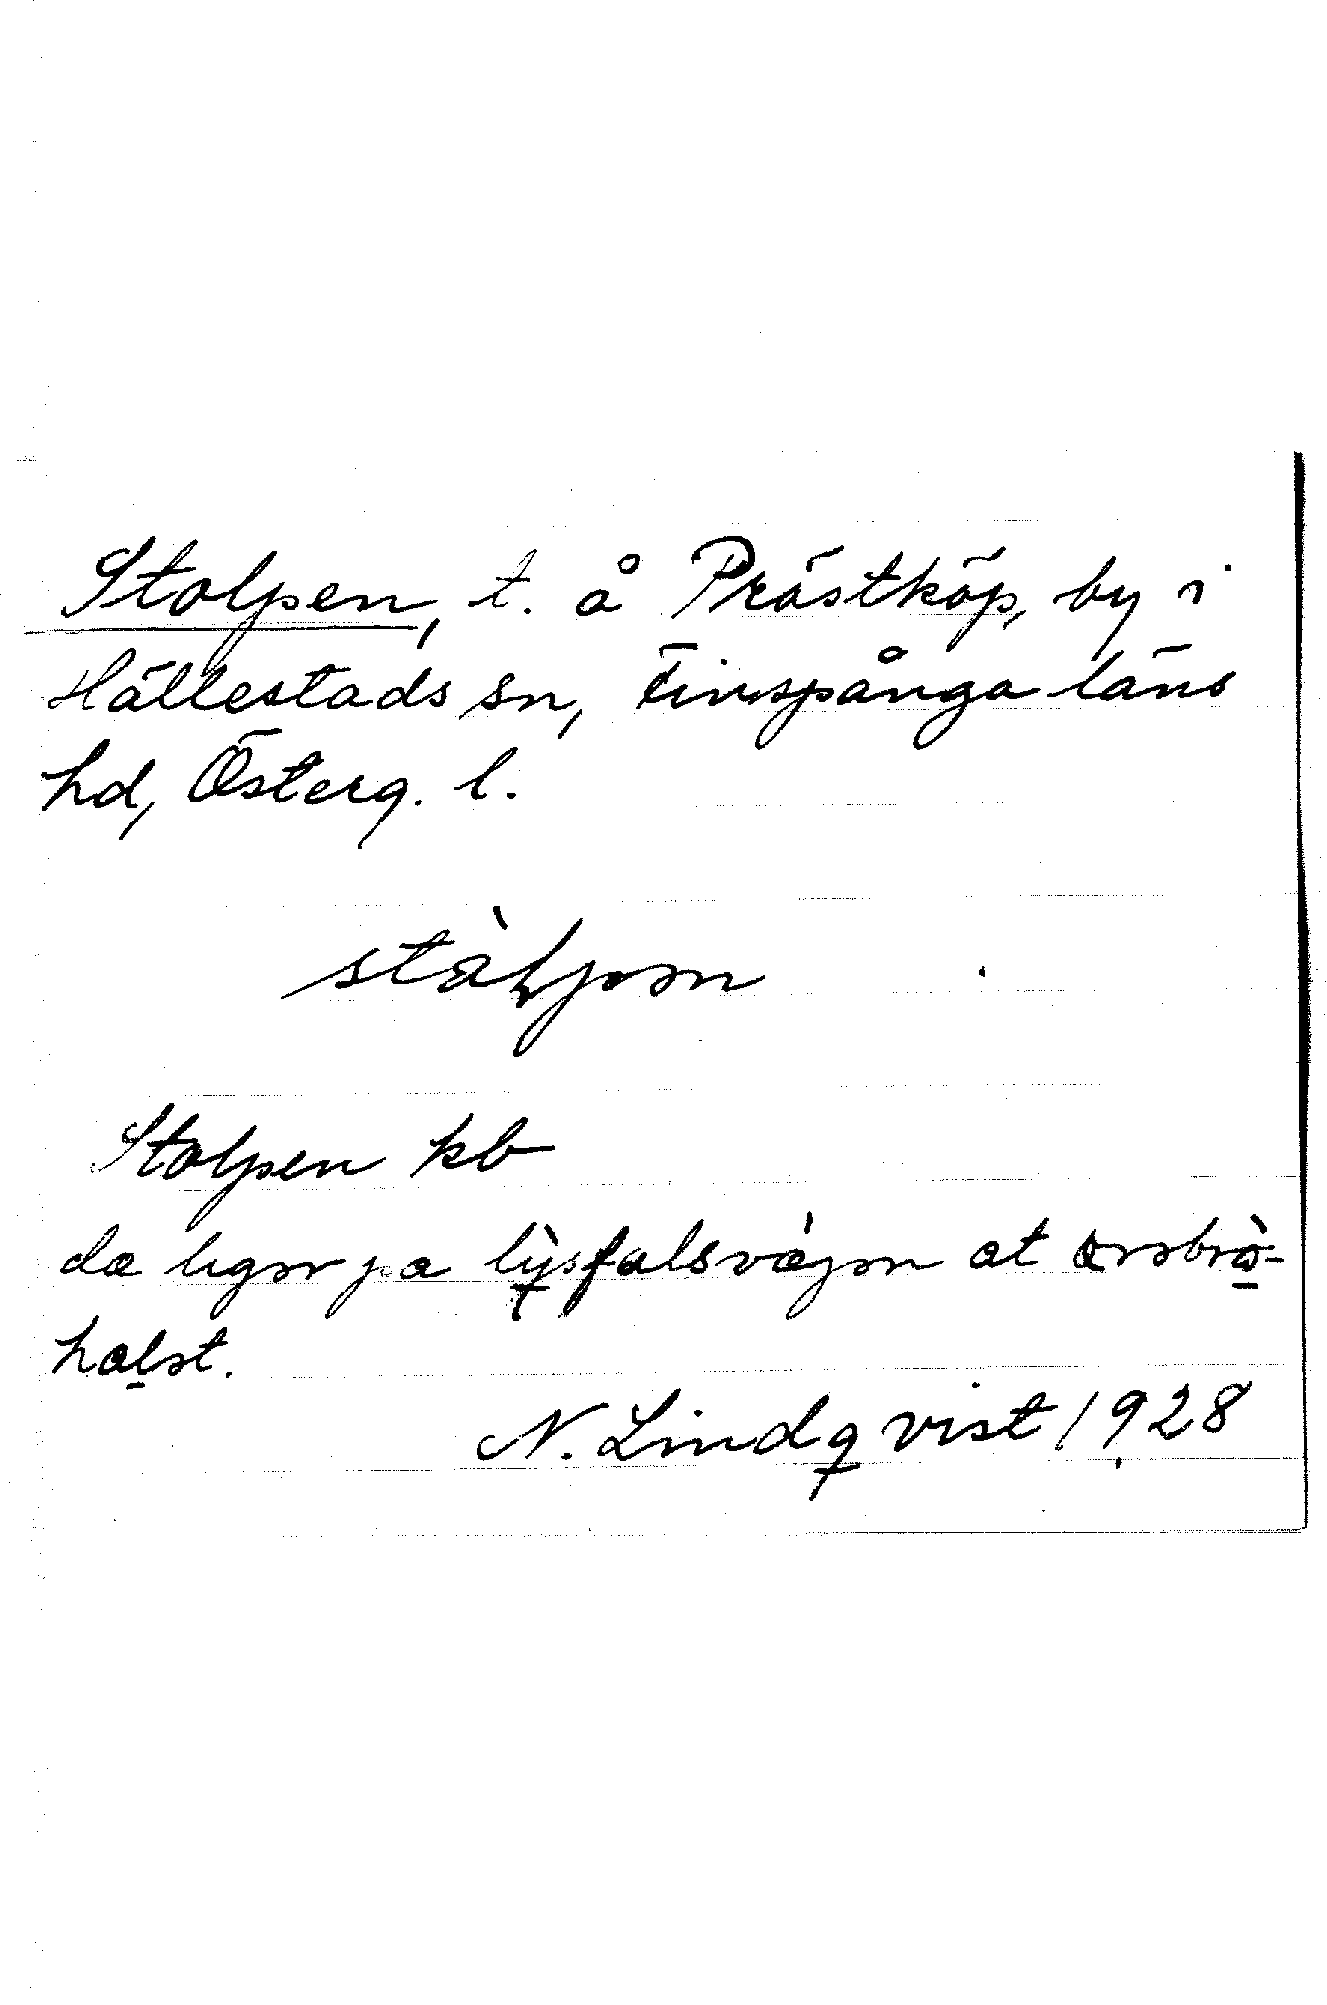 Stolpen, t. å Prästköp, by i
Hällestads sn, Finspånga läns
hd, Österg. l.
stàlpən
Stolpen kb
dæ ligər pa lỳsfalsvæ̀jən at
halst.
N. Lindqvist 1928